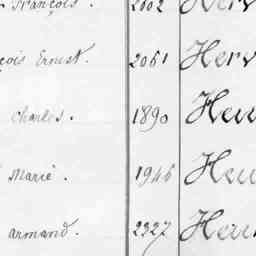 François. 2002 Herv
çois Ernest. 2061 Herv
Charles. 1890 Heu
Marie. 1946 Heu
armand. 2327